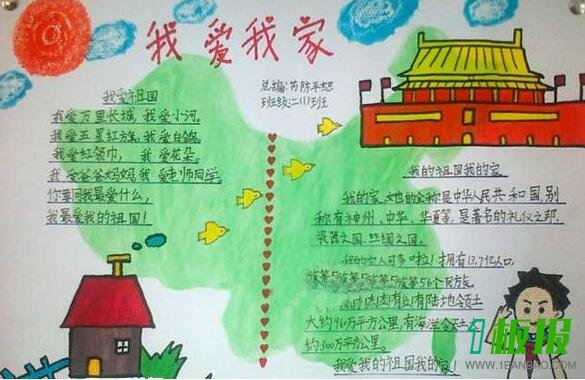 我爱我家
总编:芮陈平
班级:二(1)班
我爱祖国
我爱万里长城,我爱小河。
我爱五星红旗,我爱白鸽。
我爱红领巾,我爱花朵。
我爱爸爸妈妈,我爱老师同学。
你要问我最爱什么,
我最爱我的祖国!
我的祖国我的家
我的家,她的全称是中华人民共和国,别
称有神州、中华、华夏等,是著名的礼仪之邦、
瓷器之国、丝绸之国。
我的家人可多啦!拥有13.7亿人口,
56个民族。
有陆地领土
大约960万平方公里,有海洋领土
约300万平方公里。
我爱我的祖国我的家!
1板报
WWW.1BANBAO.COM